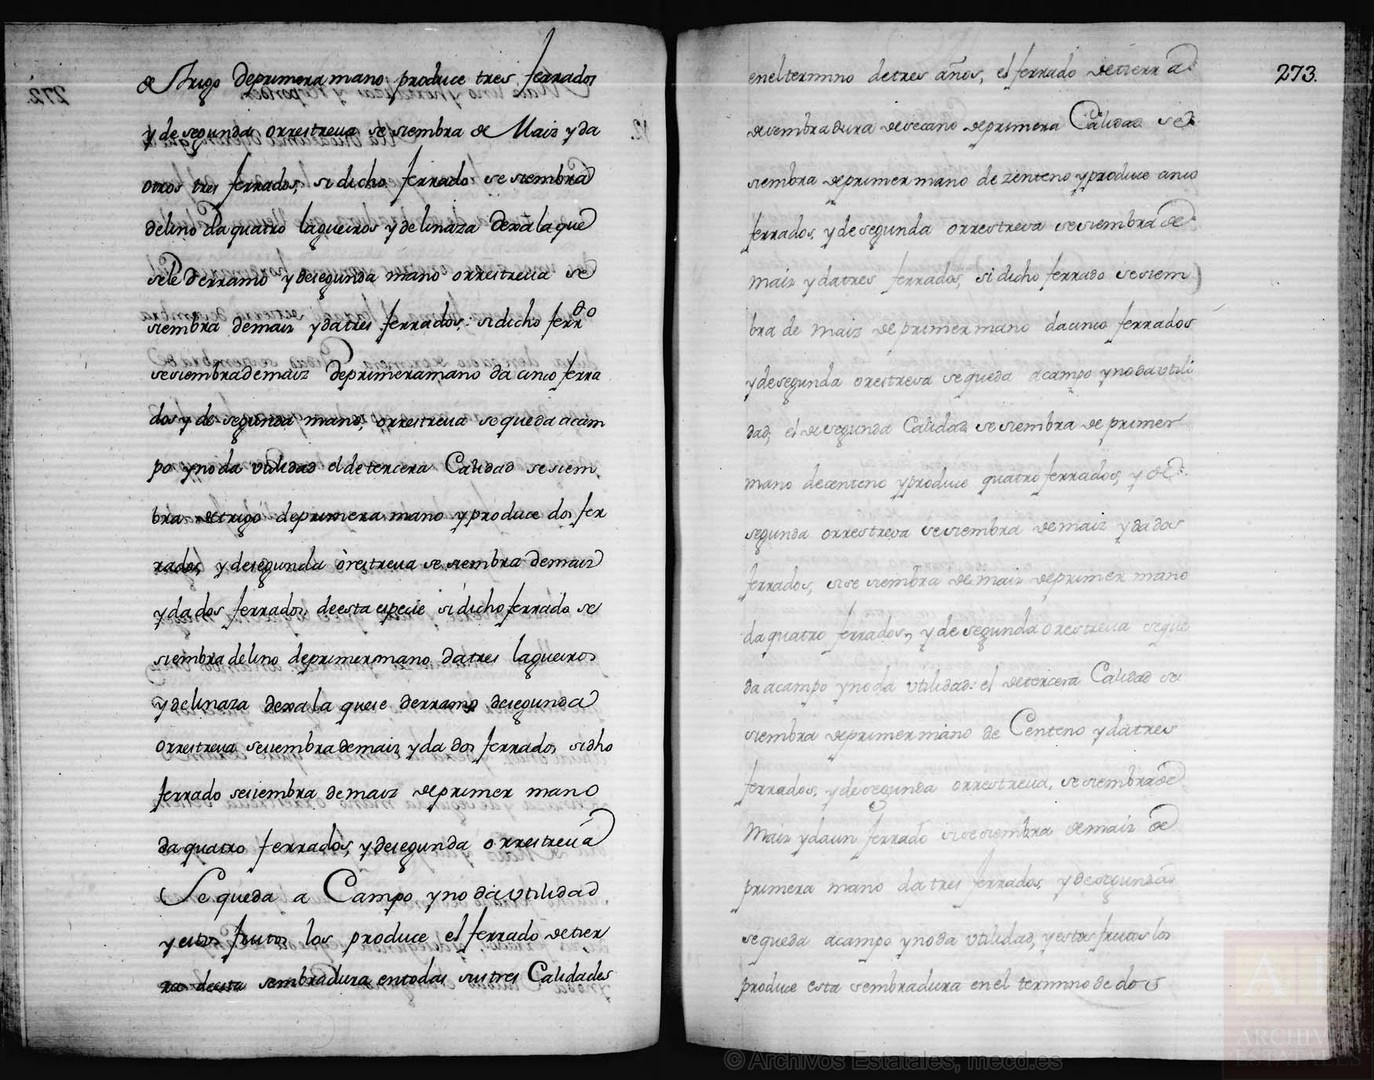 de Trigo de primera mano produce tres ferrados
y de segunda orrestreua se siembra de Maiz y da
otros tres ferrados, si dicho ferrado se siembra
de lino da quatro lagueiros y de linaza dexa la que
se le derramo y de segunda mano orrestreua se
siembra de maiz y da tres ferrados: si dicho ferrdo
se siembra de maiz de primera mano da cinco ferra
dos y de segunda mano, orrestreua se queda acam
po y no da vtilidad el de tercera Calidad se siem,
bra de trigo de primera mano y produce dos fer
rados, y de segunda òrestreua se siembra de maiz
y da dos ferrados de esta especie si dicho ferrado se
siembra de lino de primer mano da tres lagueiros
y de linaza dexa la que se derramo de segunda
orrestreua se siembra de maiz y da dos ferrados si dho
ferrado se siembra de maiz de primer mano
da quatro ferrados, y de segunda orrestreua
Se queda a Campo y no da vtilidad
y estos frutos los produce el ferrado de tier
ra desta sembradura en todas sus tres Calidades
273.
en el termino de tres años, el ferrado de tierra
de sembradura de secano de primera Calidad se
siembra de primer mano de zenteno y produce cinco
ferrados, y de segunda orrestreva se siembra de
maiz y da tres ferrados, si dicho ferrado se siem
bra de maiz de primer mano da cinco ferrados
y de segunda orestreva se queda acampo y no da vtili
dad, el de segunda Calidad se siembra de primer
mano de centeno y produce quatro ferrados, y de
segunda orrestreva se siembra de maiz y da dos
ferrados, si se siembra de maiz de primer mano
da quatro ferrados, y de segunda orestreua se que
da acampo y no da vtilidad: el de tercera Calidad se
siembra de primer mano de Centeno y da tres
ferrados, y de segunda orrestreua, se siembra de
Maiz y da un ferrado si se siembra de maiz de
primera mano da tres ferrados, y de segunda
se queda acampo y no da vtilidad, y estos frutos los
produce esta sembradura en el termino de dos
© Archivos Estatales, mecd.es
ARCHIVOS
ESTATALES